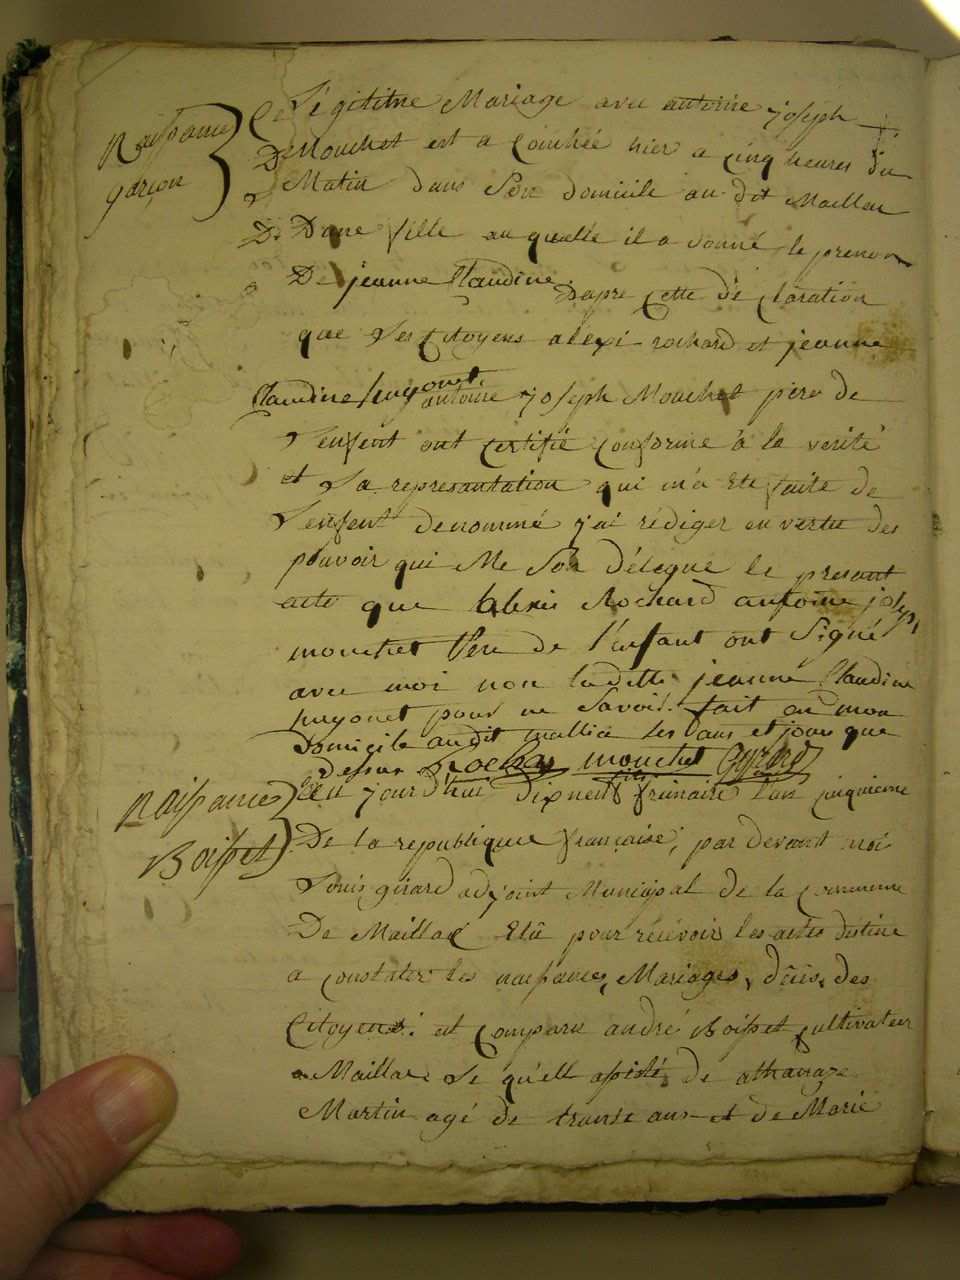 Légitime Mariage avec antoine joseph
Naissance
garcon
DeMouchet est a coucheé hier a cinq heures du
Matin dans Son domicile au dit Maillac
D'une fille au quelle il a donné le prenom
De jeanne Claudine Dapre Cette dé claration
que les Citoyens alexi rochard et jeanne
Claudine hugonet. antoine joseph Mouchet père de
L'enfent ont Certifié Conforme à la verité
et La represantation qui m'a Eté faite de
L'enfent denommé j'ai rédiger en vertu des
pouvoir qui Me Son délégué le presant
acte que alexis Rochard antoine joseph
mouchet Pere de l'enfant ont Signé
avec moi non laditte jeanne Claudine
hugonet pour ne Savoir. fait en mon
Domicile audit mallia les ans et jours que
Dessus Rochar mouchet Gyrard
Naissance
Boisset
Cejour d'hui dixneuf frimaire l'an cinquieme
De la republique française, par devant moi
Louis girard adjoint Municipal de la Commune
De Maillac Elû pour récévoir les actes destiné
a constater les naissances, Mariages, décès, des
Citoyens: est comparu andré Boisset cultivateur
a Maillac Le qu'ell assisté de athanaze
Martin agé de trante ans et de Marie